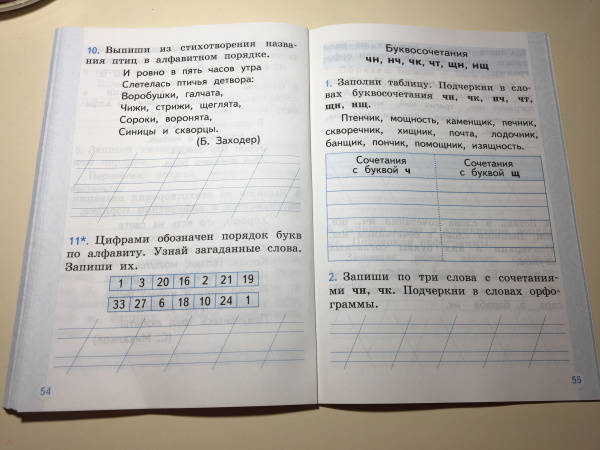 10. Выпиши из стихотворения назва-
ния птиц в алфавитном порядке.
И ровно в пять часов утра
Слетелась птичья детвора:
Воробушки, галчата,
Чижи, стрижи, щеглята,
Сороки, воронята,
Синицы и скворцы.
(Б. Заходер)
11*. Цифрами обозначен порядок букв
по алфавиту. Узнай загаданные слова.
Запиши их.
1 3 20 16 2 21 19
33 27 6 18 10 24 1
54
Буквосочетания
чн, нч, чк, чт, щн, нщ
1. Заполни таблицу. Подчеркни в сло-
вах буквосочетания чн, чк, нч, чт,
щн, нщ.
Птенчик, мощность, каменщик, печник,
скворечник, хищник, почта, лодочник,
банщик, пончик, помощник, изящность.
Сочетания с буквой ч
Сочетания с буквой щ
2. Запиши по три слова с сочетания-
ми чн, чк. Подчеркни в словах орфо-
граммы.
55